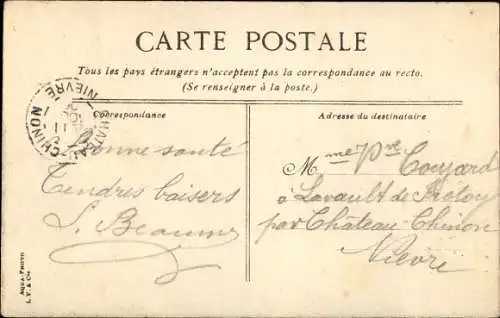 CARTE POSTALE
Tous les pays étrangers n'acceptent pas la correspondance au recto.
(Se renseigner à la poste.)
CHATEAU-CHINON
NIÈVRE
Correspondance
Bonne santé
Tendres baisers
Adresse du destinataire
Mme Pve Coujard
à Lavault de Frétoy
par Château Chinon
Nièvre
AQUA-PHOTO
L. V. & Cie